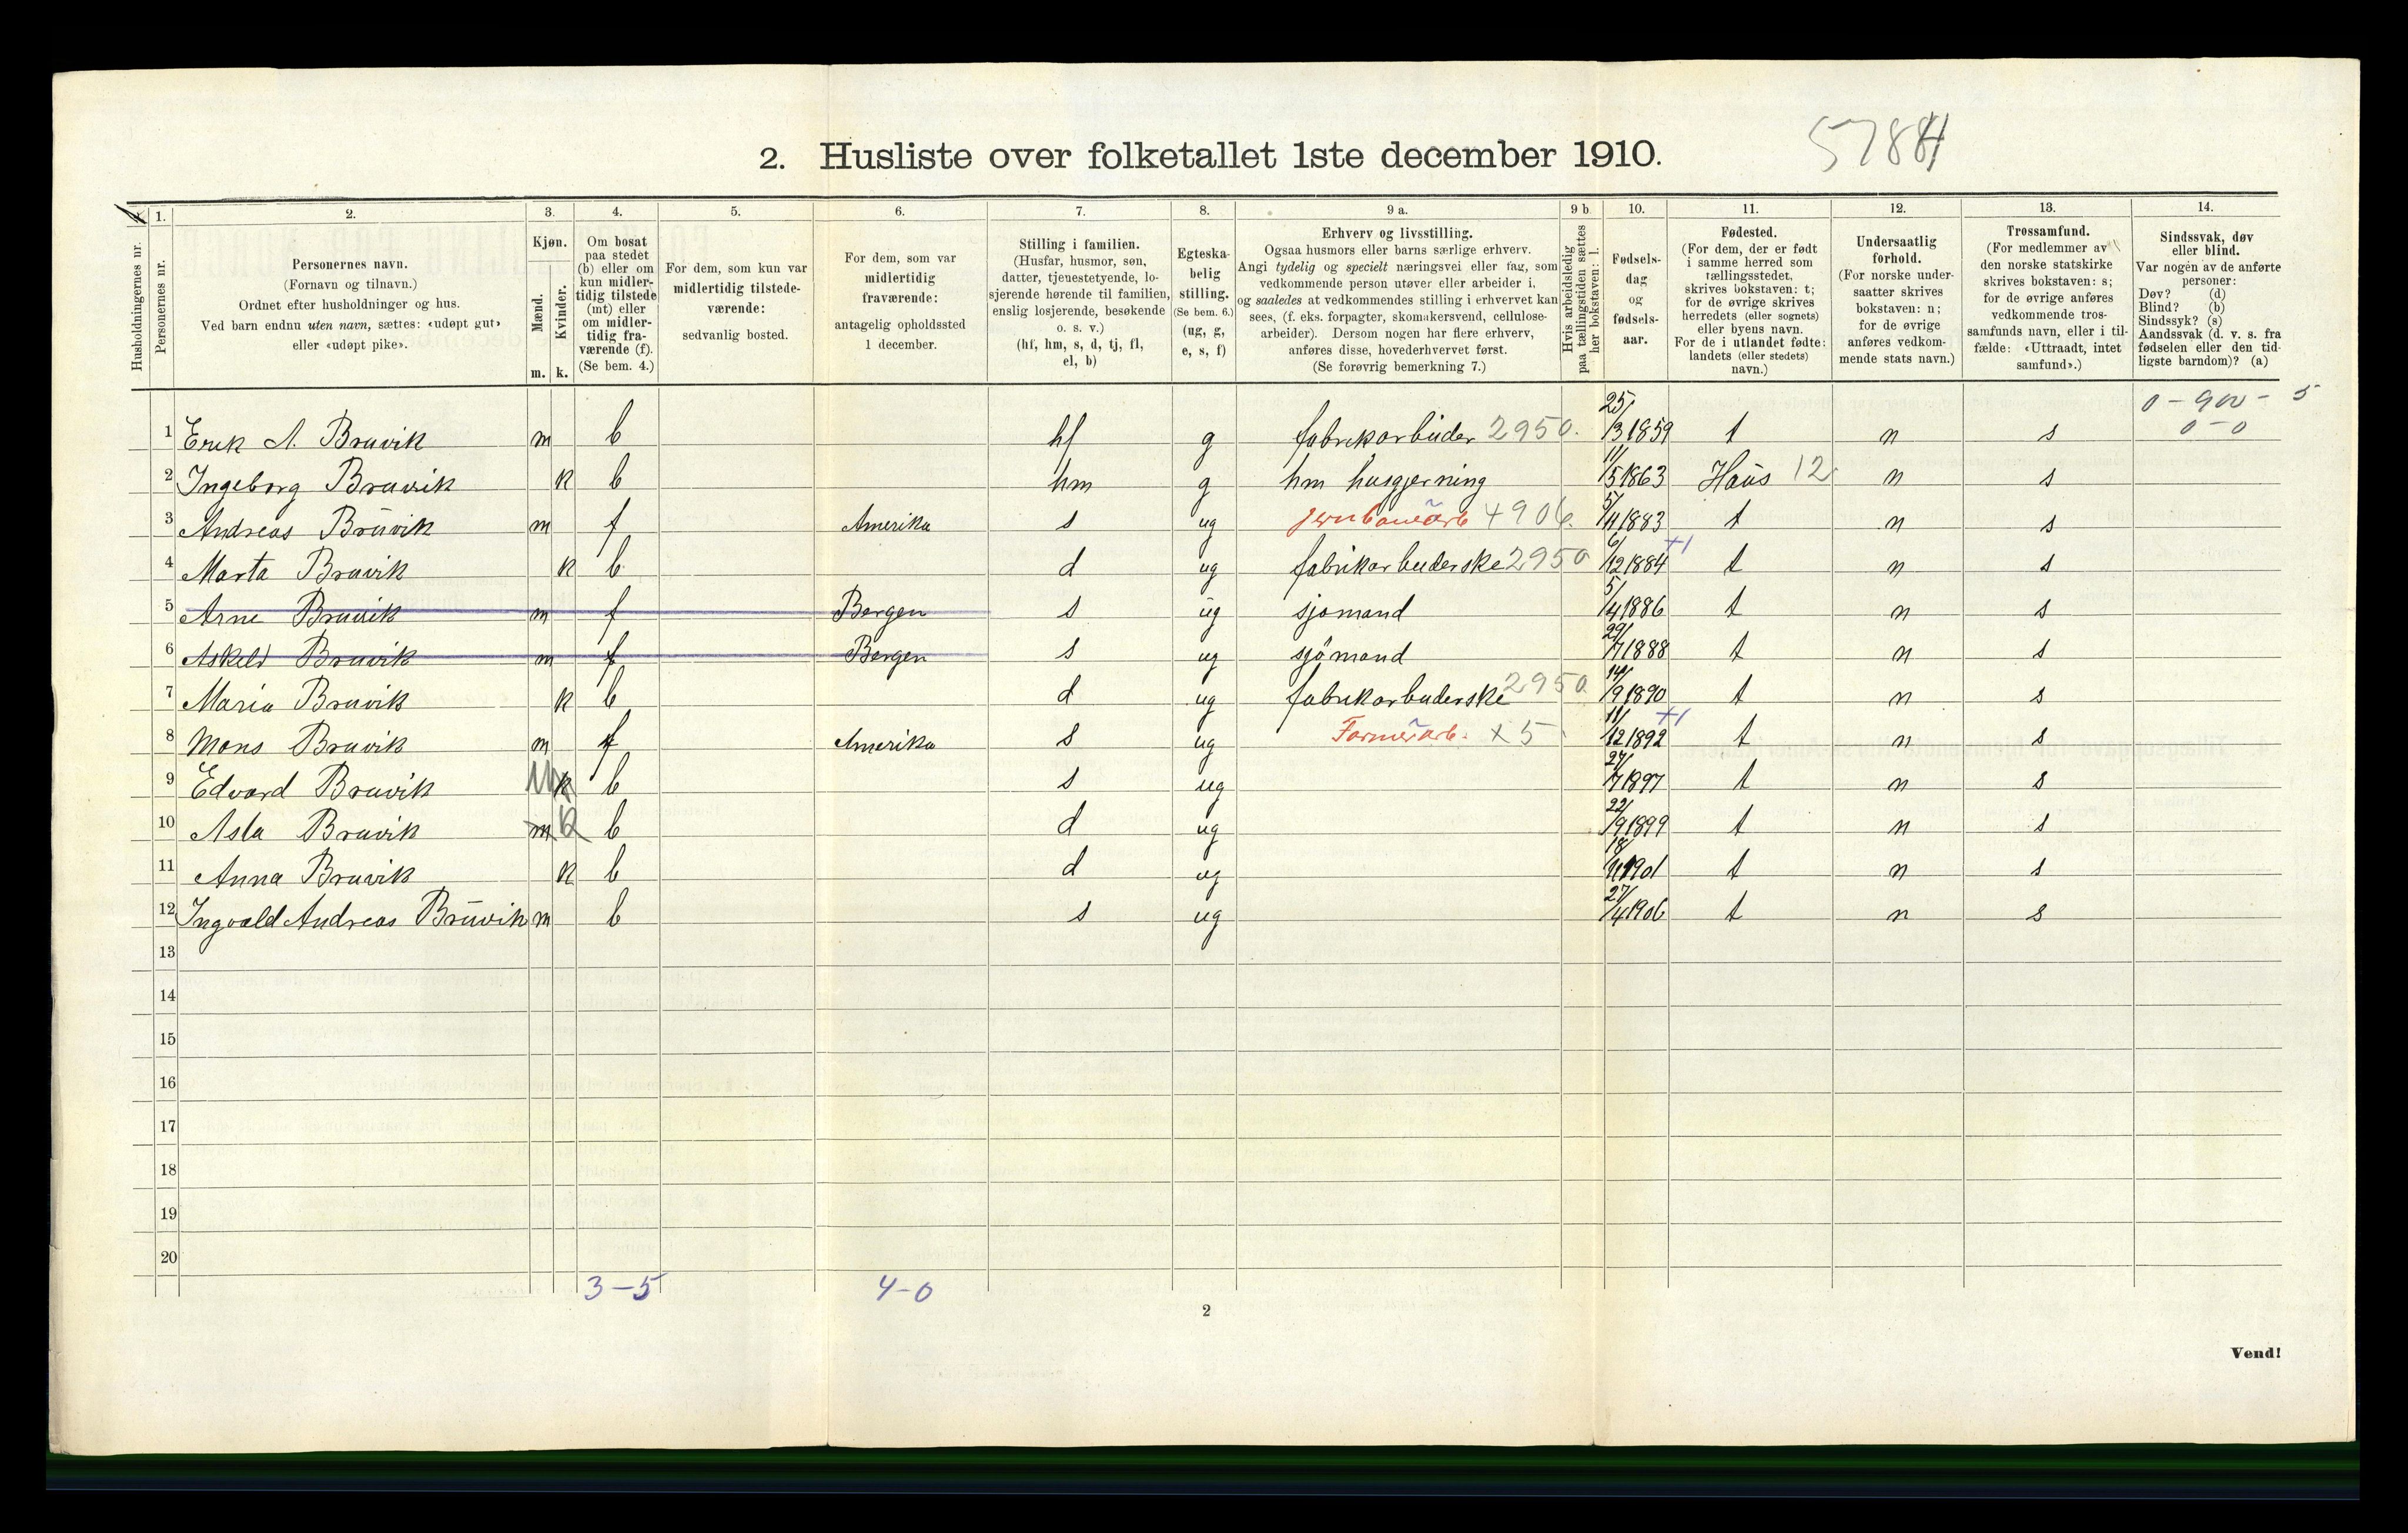 2. Husliste over folketallet 1ste december 1910.
5784
1. 2. 3. 4. 5. 6. 7. 8. 9 a. 9 b 10. 11. 12. 13. 14.
Husholdningernes nr.
Personernes nr.
Personernes navn.
(Fornavn og tilnavn.)
Ordnet efter husholdninger og hus.
Ved barn endnu uten navn, sættes: «udøpt gut»
eller «udøpt pike».
Kjøn.
Mænd.
Kvinder.
m. k.
Om bosat
paa stedet
(b) eller om
kun midler-
tidig tilstede
(mt) eller
om midler-
tidig fra-
værende (f).
(Se bem. 4.)
For dem, som kun var
midlertidig tilstede-
værende:
sedvanlig bosted.
For dem, som var
midlertidig
fraværende:
antagelig opholdssted
1 december.
Stilling i familien.
(Husfar, husmor, søn,
datter, tjenestetyende, lo-
sjerende hørende til familien,
enslig losjerende, besøkende
o. s. v.)
(hf, hm, s, d, tj, fl,
el, b)
Egteska-
belig
stilling.
(Se bem. 6.)
(ug, g,
e, s, f)
Erhverv og livsstilling.
Ogsaa husmors eller barns særlige erhverv.
Angi tydelig og specielt næringsvei eller fag, som
vedkommende person utøver eller arbeider i,
og saaledes at vedkommendes stilling i erhvervet kan
sees, (f. eks. forpagter, skomakersvend, cellulose-
arbeider). Dersom nogen har flere erhverv,
anføres disse, hovederhvervet først.
(Se forøvrig bemerkning 7.)
Hvis arbeidsledig
paa tællingstiden sættes
her bokstaven: l.
Fødsels-
dag
og
fødsels-
aar.
Fødested.
(For dem, der er født
i samme herred som
tællingsstedet,
skrives bokstaven: t;
for de øvrige skrives
herredets (eller sognets)
eller byens navn.
For de i utlandet fødte:
landets (eller stedets)
navn.)
Undersaatlig
forhold.
(For norske under-
saatter skrives
bokstaven: n;
for de øvrige
anføres vedkom-
mende stats navn.)
Trossamfund.
(For medlemmer av
den norske statskirke
skrives bokstaven: s;
for de øvrige anføres
vedkommende tros-
samfunds navn, eller i til-
fælde: «Uttraadt, intet
samfund».)
Sindssvak, døv
eller blind.
Var nogen av de anførte
personer:
Døv? (d)
Blind? (b)
Sindssyk? (s)
Aandssvak (d. v. s. fra
fødselen eller den tid-
ligste barndom)? (a)
0 - 900 - 5
0 - 0
1 Erik A. Bruvik m b hf g fabrikarbeider 2950. 25/3 1859 t n s
2 Ingeborg Bruvik k b hm g hm husgjerning 11/5 1863 Haus 12 n s
3 Andreas Brŭvik m f Amerika s ug Jernbanearb 4906. 5/4 1883 t n s
4 Marta Bruvik k b d ug fabrikarbeiderske 2950 6/12 1884 +1 t n s
5 Arne Bruvik m f Bergen s ug sjomand 5/4 1886 t n s
6 Askeld Bruvik m f Bergen s ug sjömand 29/7 1888 t n s
7 Maria Bruvik k b d ug fabrikarbeiderske 2950 14/9 1890 t n s
8 Mons Bruvik m f Amerika s ug Farmerarb. x5 11/12 1892 +1 t n s
9 Edvard Bruvik M k b s ug 27/7 1897 t n s
10 Asla Bruvik m k b d ug 22/9 1899 t n s
11 Anna Bruvik k b d ug 18/11 1901 t n s
12 Ingvald Andreas Brŭvik m b s ug 27/4 1906 t n s
13
14
15
16
17
18
19
20
3-5 4-0
2
Vend!